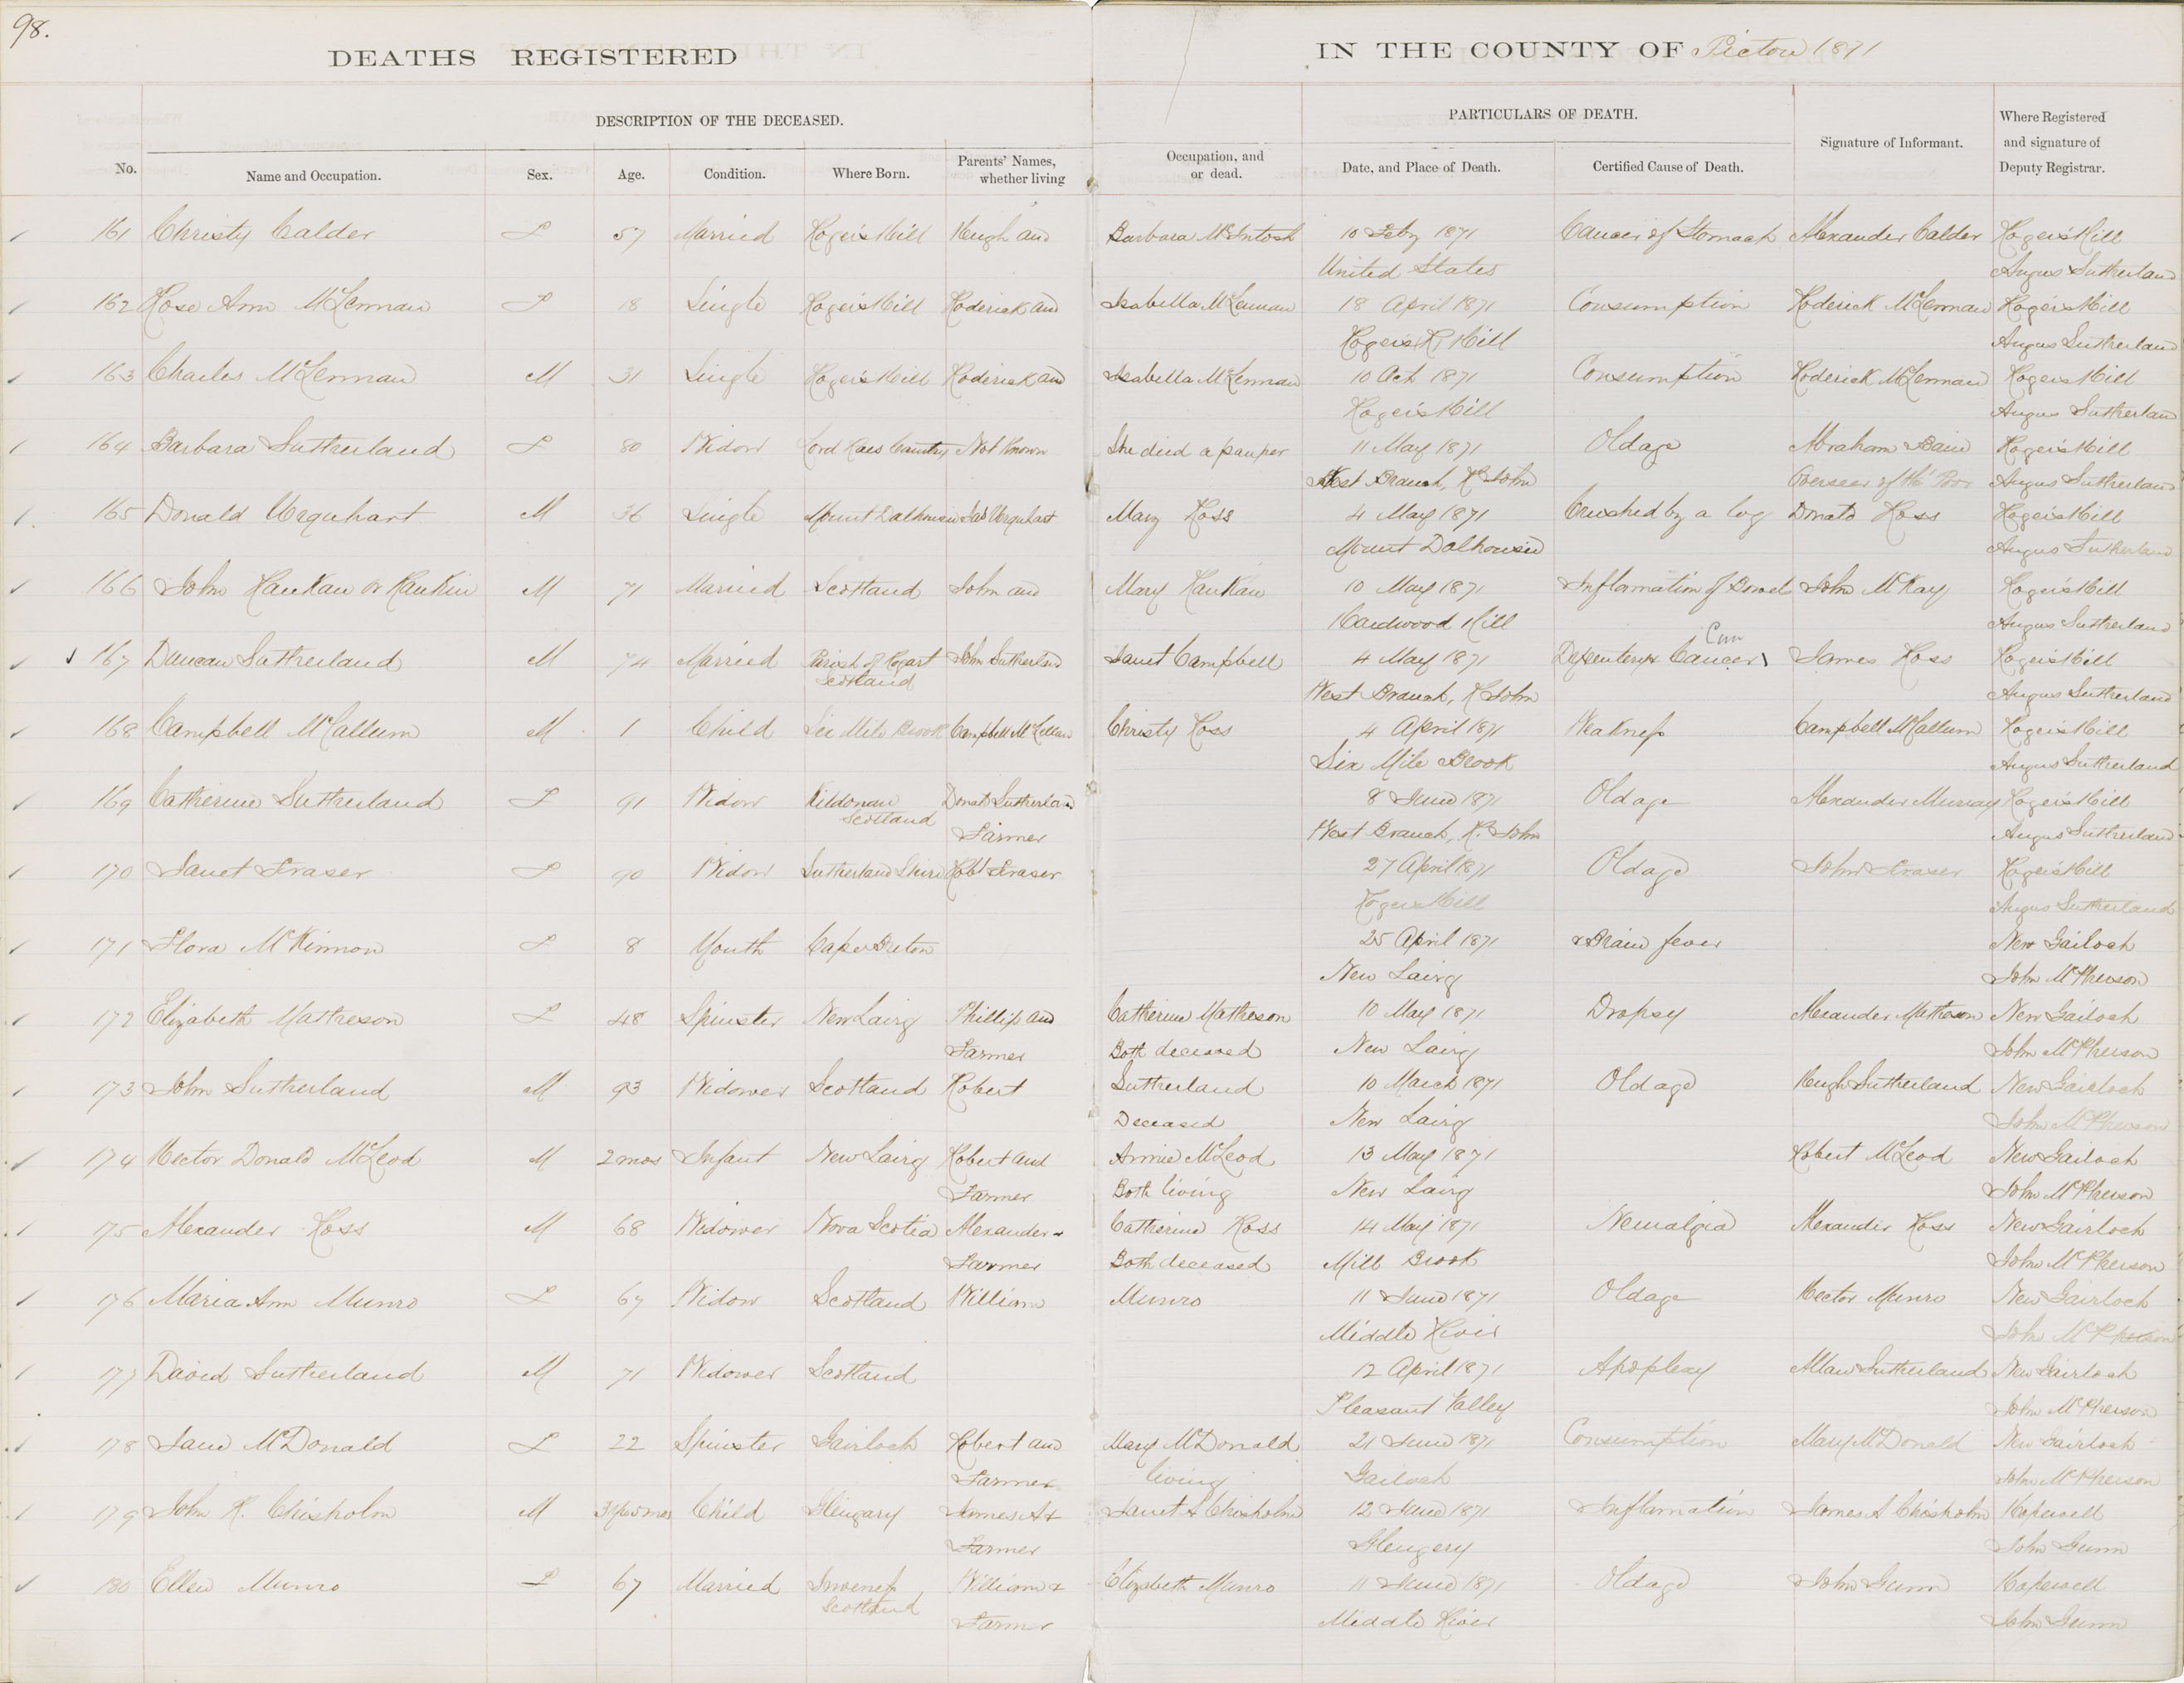 98.
DEATHS REGISTERED IN THE COUNTY OF Pictou 1871
DESCRIPTION OF THE DECEASED. PARTICULARS OF DEATH.
No. Name and Occupation. Sex. Age. Condition. Where Born. Parents' Names, whether living Occupation, and or dead. Date, and Place of Death. Certified Cause of Death. Signature of Informant. Where Registered and signature of Deputy Registrar.
161 Christy Calder F 57 Married Roger's Hill Hugh and Barbara McIntosh 10 Feby 1871 Cancer of Stomach Alexander Calder Roger's Hill
United States Angus Sutherland
162 Rose Ann McLennan F 18 Single Roger's Hill Roderick and Isabella McLennan 18 April 1871 Consumption Roderick McLennan Roger's Hill
Roger's Hill Angus Sutherland
163 Charles McLennan M 31 Single Roger's Hill Roderick and Isabella McLennan 10 Oct 1871 Consumption Roderick McLennan Roger's Hill
Roger's Hill Angus Sutherland
164 Barbara Sutherland F 80 Widow Lord Raes Country Not Known She died a pauper 11 May 1871 Old age Abraham Bain Roger's Hill
West Branch, R John Overseer of the Poor Angus Sutherland
165 Donald Urquhart M 36 Single Mount Dalhousie Jas Urquhart Mary Ross 4 May 1871 Crushed by a log Donald Ross Roger's Hill
Mount Dalhousie Angus Sutherland
166 John Rankan or Rankin M 71 Married Scotland John and Mary Rankan 10 May 1871 Inflamation of Bowel John McKay Roger's Hill
Hardwood Hill Angus Sutherland
167 Duncan Sutherland M 74 Married Parish of Rogart John Sutherland Janet Campbell 4 May 1871 Dysentery & Cancer James Ross Roger's Hill
Scotland West Branch, R John Angus Sutherland
168 Campbell McCallum M 1 Child Six Mile Brook Campbell McCallum Christy Ross 4 April 1871 Weakness Campbell McCallum Roger's Hill
Six Mile Brook Angus Sutherland
169 Catherine Sutherland F 91 Widow Kildonan Donald Sutherland 8 June 1871 Old age Alexander Murray Roger's Hill
Scotland Farmer West Branch, R. John Angus Sutherland
170 Janet Fraser F 90 Widow Sutherland Shire Robt Fraser 27 April 1871 Old age John Fraser Roger's Hill
Roger's Hill Angus Sutherland
171 Flora McKinnon F 8 Youth Cape Breton 25 April 1871 Brain fever New Gairloch
New Lairg John McPherson
172 Elizabeth Matheson F 48 Spinster New Lairg Phillip and Catherine Matheson 10 May 1871 Dropsy Alexander Matheson New Gairloch
Farmer Both deceased New Lairg John McPherson
173 John Sutherland M 93 Widower Scotland Robert Sutherland 10 March 1871 Old age Hugh Sutherland New Gairloch
Deceased New Lairg John McPherson
174 Hector Donald McLeod M 2 mos Infant New Lairg Robert and Annie McLeod 13 May 1871 Robert McLeod New Gairloch
Farmer Both living New Lairg John McPherson
175 Alexander Ross M 68 Widower Nova Scotia Alexander & Catherine Ross 14 May 1871 Neuralgia Alexander Ross New Gairloch
Farmer Both deceased Mill Brook John McPherson
176 Maria Ann Munro F 67 Widow Scotland William Munro 11 June 1871 Old age Hector Munro New Gairloch
Middle River John McPherson
177 David Sutherland M 71 Widower Scotland 12 April 1871 Apoplexy Allan Sutherland New Gairloch
Pleasant Valley John McPherson
178 Jane McDonald F 22 Spinster Gairloch Robert and Mary McDonald 21 June 1871 Consumption Mary McDonald New Gairloch
Farmer living Gairloch John McPherson
179 John R. Chisholm M 3 yrs 5 mos Child Glengary James A & Janet A Chisholm 12 June 1871 Inflamation James A Chisholm Hopewell
Farmer Glengery John Gunn
180 Ellen Munro F 67 Married Inverness William & Elizabeth Munro 11 June 1871 Old age John Gunn Hopewell
Scotland Farmer Middle River John Gunn